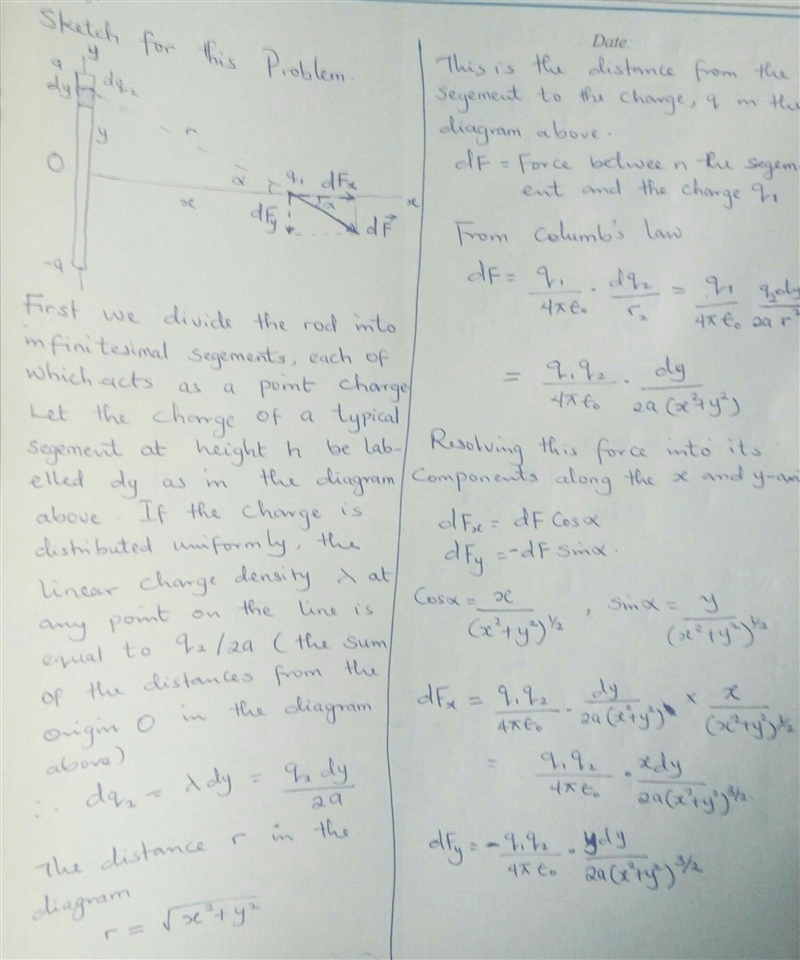 Sketch for this Problem.
y
a
dy dq₂
y
r
O
α q₁ dFₓ
x α x
dFy dF⃗
-a
First we divide the rod into
infinitesimal segements, each of
which acts as a point charge
Let the charge of a typical
segement at height h be lab-
elled dy as in the diagram
above. If the charge is
distributed uniformly, the
linear charge density λ at
any point on the line is
equal to q₂/2a (the sum
of the distances from the
origin O in the diagram
above)
∴ dq₂ = λdy = q₂dy/2a
The distance r in the
diagram
r = √(x²+y²)
Date:
This is the distance from the
segement to the charge, q in the
diagram above.
dF = Force between the segem-
ent and the charge q₁
From Columb's law
dF = q₁/4πϵ₀ · dq₂/r₂ = q₁/4πϵ₀ q₂dy/2ar²
= q₁q₂/4πϵ₀ · dy/2a(x²+y²)
Resolving this force into its
Components along the x and y-axi
dFₓ = dF Cosα
dFy = -dF sinα.
Cosα = x/(x²+y²)^½ , sinα = y/(x²+y²)^½
dFₓ = q₁q₂/4πϵ₀ · dy/2a(x²+y²) × x/(x²+y²)^½
= q₁q₂/4πϵ₀ · xdy/2a(x²+y²)^3/2
dFy = -q₁q₂/4πϵ₀ · ydy/2a(x²+y²)^3/2